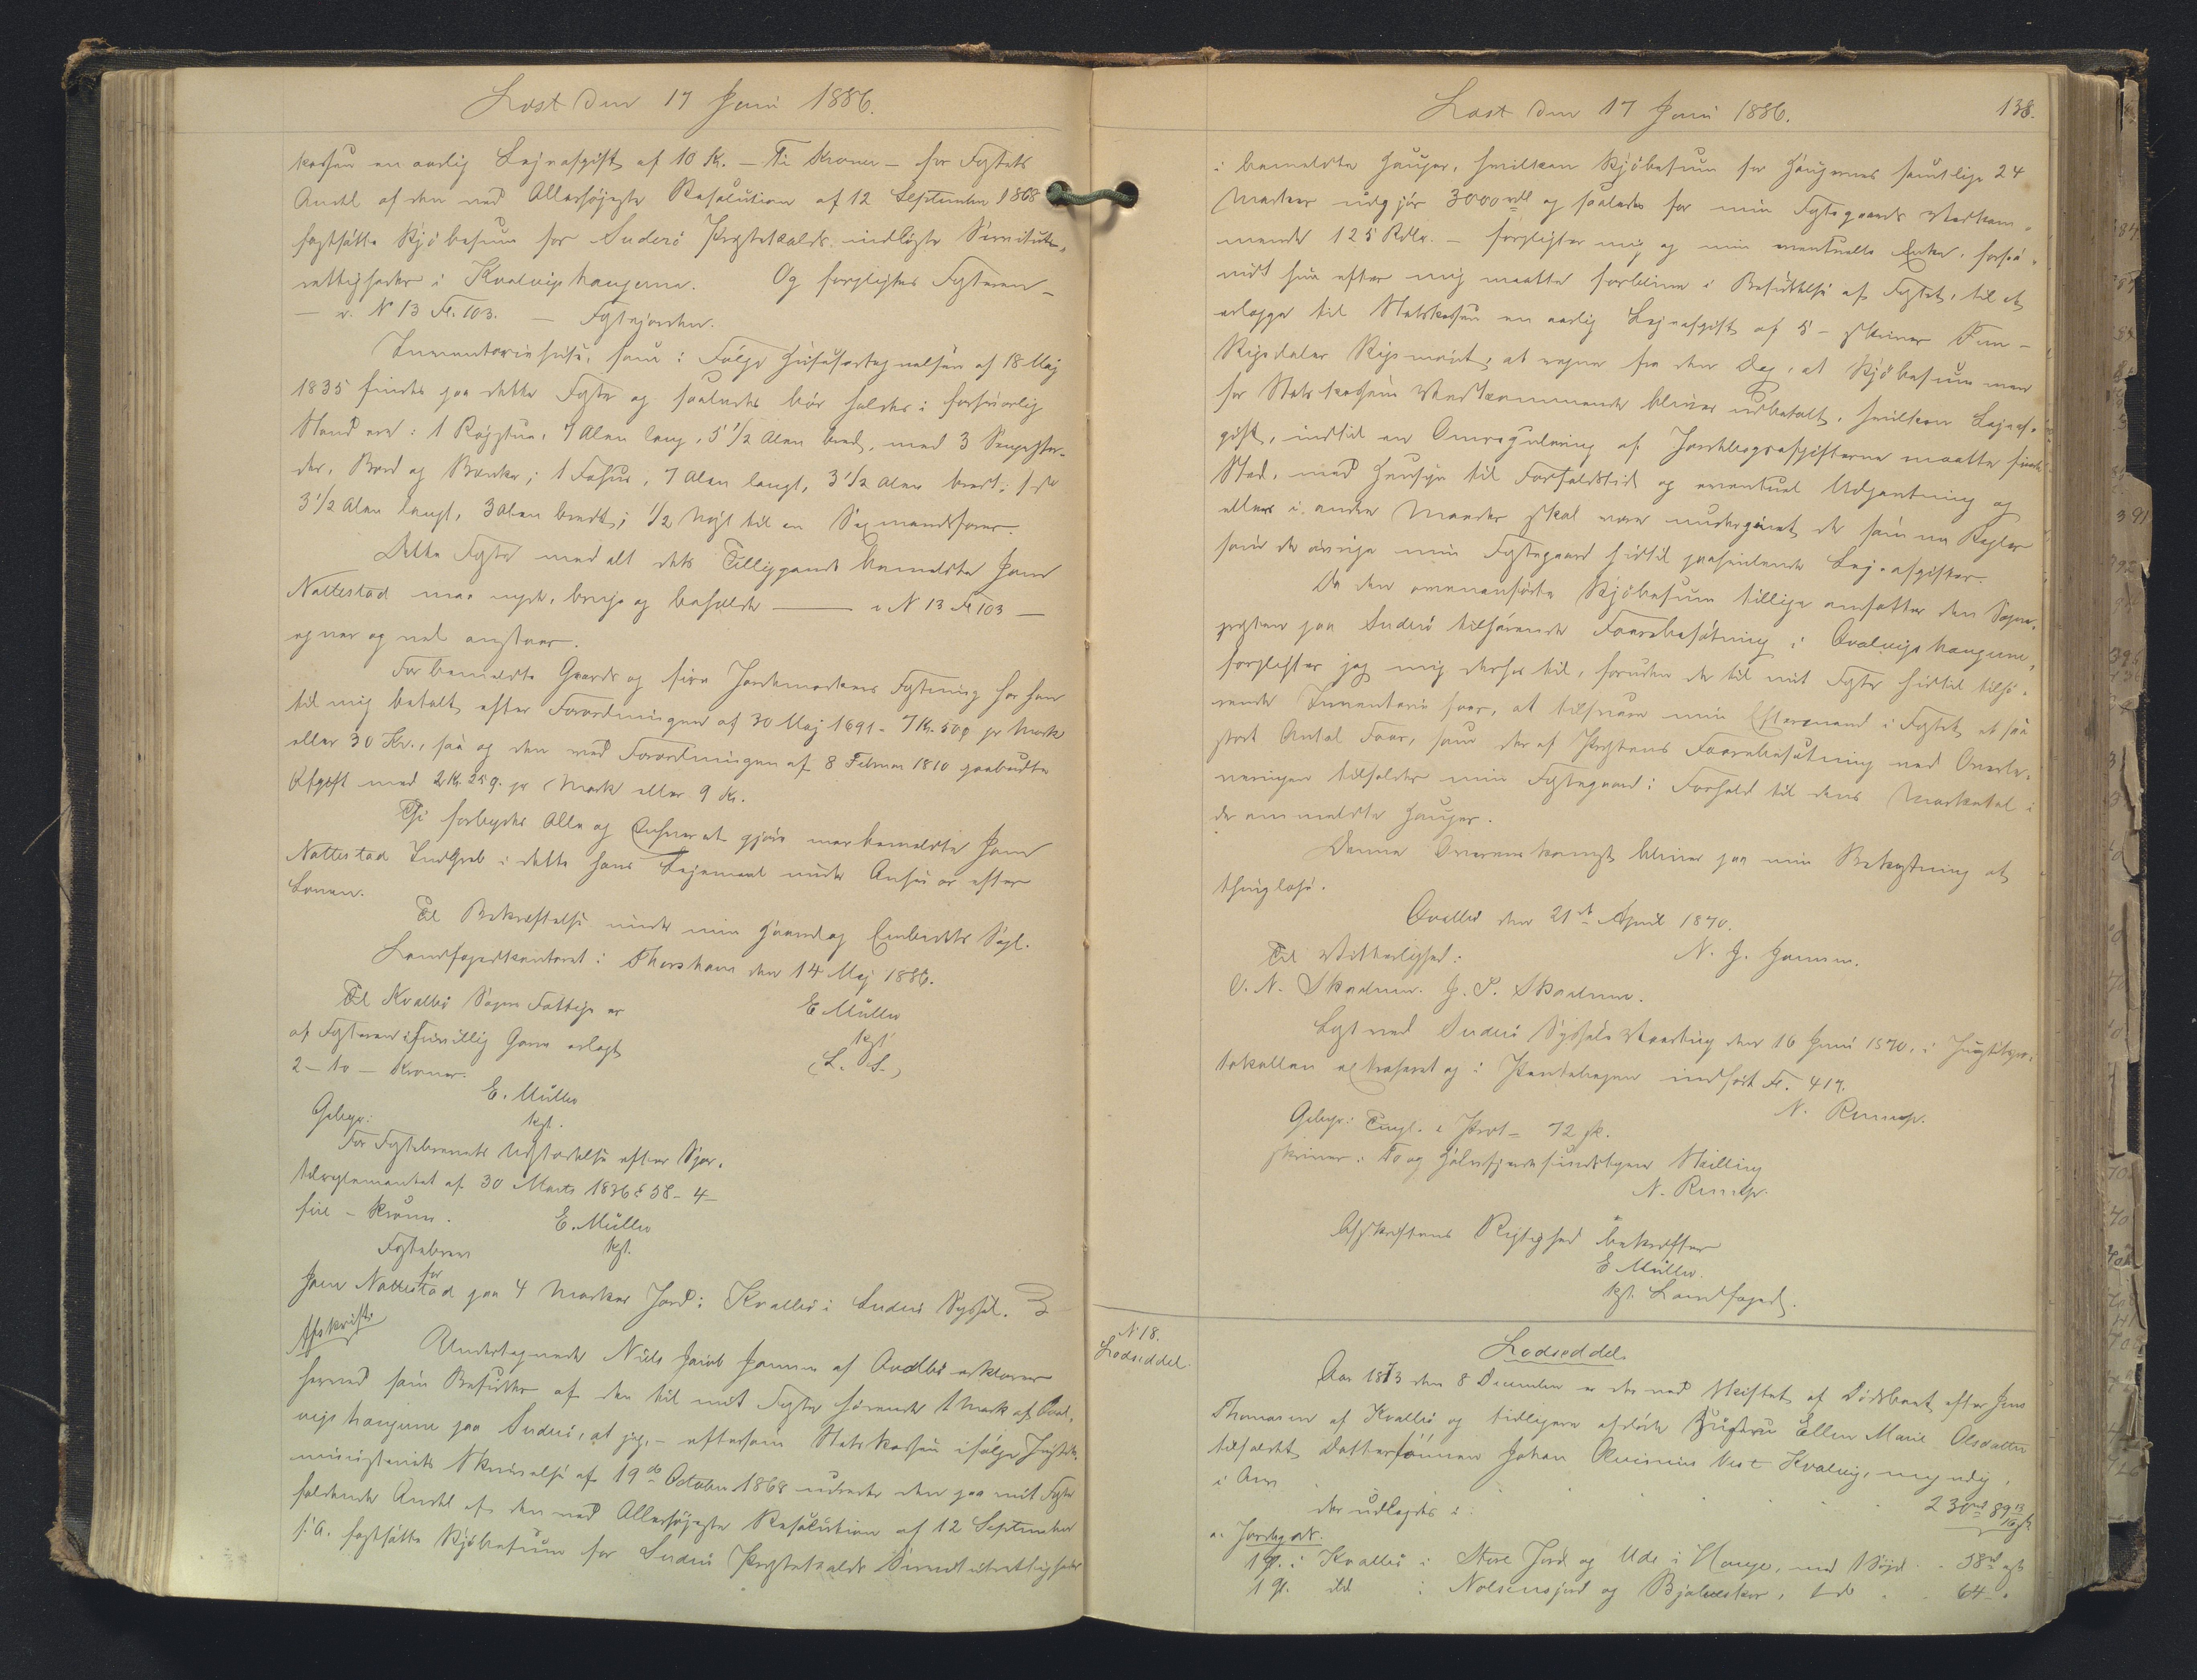 Læst den 17 Juni 1886.
kassen en aarlig Lejeafgift af 10 Kr. – Ti Kroner – for Fæstets
Andel af den ved Allerhøjeste Resolution af 12 September 1868
fastsatte Kjøbesum for Suderø Præstekalds indløste Servituts-
rettigheder i Kvalvigs haugerne. Og forpligtes Fæsteren –
– v. N 13 Fo. 103. – Fæstejorden.
Inventariehuse, som i Følge Huusfortegnelsen af 18 Maj
1835 findes paa dette Fæste og saaledes bør holdes i forsvarlig
Stand ere: 1 Røgstue, 7 Alen lang, 5 1/2 Alen bred, med 3 Sengester-
der, Bord og Bænke; 1 Fæhus, 7 Alen langt, 3 1/2 Alen bredt; 1 do
3 1/2 Alen langt, 3 Alen bredt; 1/2 Nøst til en Sexmandsfarer.
Dette Fæste med alt dets Tilliggende bemeldte Jens
Nattestad maa nyde, bruge og beholde — v N 13 Fo 103 —
og vær og vel anstaar.
For bemeldte Gaards og fire Jordemarkers Fæstning har han
til mig betalt efter Forordningen af 30 Maj 1691 – 7 Kr. 50 ø pr Mark
eller 30 Kr., saa og den ved Forordningen af 8 Februar 1810 paabudte
Afgift med 2 Kr 25 ø. pr Mark eller 9 Kr.
Thi forbydes Alle og Enhver at gjøre meerbemeldte Jens
Nattestad Indgreb i dette hans Lejemaal under Ansvar efter
Loven.
Til Bekræftelse under min Haand og Embeds Segl.
Landfogedkontoret i Thorshavn den 14 Maj 1886.
E Müller
kst
(L. S.)
Til Kvalbø Sogns Fattige er
af Fæsteren i frivillig Gave erlagt
2 – to – Kroner.
E. Müller
kst.
Gebyr:
For Fæstebrevets Udstedelse efter Spor-
telreglementet af 30 Marts 1836 § 58 – 4 –
fire – Kroner.
E. Müller
kst.
Fæstebrev
for
Jens Nattestad paa 4 Marker Jord i Kvalbø i Suderø Syssel.
Afskrift.
Undertegnede Niels Jacob Jensen af Qvalbø erklærer
herved som Besidder af den til mit Fæste hørende 1 Mark af Qval-
vigs haugerne paa Suderø, at jeg, – eftersom Statskassen ifølge Justits-
ministeriets Skrivelse af 19de October 1868 udreder den paa mit Fæste
faldende Andel af den ved Allerhøjeste Resolution af 12 September
s. A. fastsatte Kjøbesum for Suderø Præstekalds Servitutrettigheder
Læst den 17 Juni 1886.
138.
i bemeldte Hauger, hvilken Kjøbesum for Haugernes samtlige 24
Marker udgjør 3000 rdl og saaledes for min Fæstegaards Vedkom-
mende 125 Rdlr. – forpligter mig og min eventuelle Enke, forsaa-
vidt hun efter mig maatte forblive i Besiddelse af Fæstet, til at
erlægge til Statskassen en aarlig Lejeafgift af 5 – skriver Fem –
Rigsdaler Rigsmønt, at regne fra den Dag, at Kjøbesummen
for Statskassens Vedkommende bliver udbetalt, hvilken Lejeaf-
gift, indtil en Omregulering af Jordebogsafgifterne maatte finde
Sted, med Hensyn til Forfaldstid og eventuel Udpantning og
ellers i andre Maader skal være undergivet de samme Regler
som de øvrige min Fæstegaard hidtil paahvilende Lejeafgifter.
Da den ovennævnte Kjøbesum tillige omfatter den Sogne-
præsten paa Suderø tilhørende Faarebesætning i Qvalvigs haugerne,
forpligter jeg mig derhos til, foruden de til mit Fæste hidtil tilhø-
rende Inventarii faar, at tilsvare min Eftermand i Fæstet et saa
stort Antal Faar, som der af Præstens Faarebesætning ved Overle-
veringen tilfalder min Fæstegaard i Forhold til dens Marketal i
de ommeldte Hauger.
Denne Overenskomst bliver paa min Bekostning at
thinglæse.
Qvalbø den 21de April 1870.
N. J. Jensen.
Til Vitterlighed:
O. N. Skaalum. J. P. Skaalum.
Læst ved Suderø Syssels Vaarting den 16 Juni 1870, i Justitspro-
tokollen extraheret og i Pantebogen indført Fo. 417.
N. Rempe.
Gebyr: Tingl. & Prot – 72 sk.
skriver: To og Halvfjerdsindstyve Skilling
N. Rempe.
Afskriftens Rigtighed bekræfter
E Müller.
kst. Landfoged.
N 18.
Lodseddel.
Lodseddel
Aar 1873 den 8 December er der ved Skiftet af Dødsboet efter Jens
Thomasen af Kvalbø og tidligere afdøde Hustru Ellen Marie Olsdatter
tilfaldet Dattersønnen Johan Qvirinus Vest Kvalvig, myndig,
i Arv . . . . . . 230 rd 89 13/16 sk
der udlagdes i:
a. Jordegods.
1 G. i Kvalbø i Store Jord og Ude i Hauge, med Nøjd . . 58 rd
1 G. dd i Nolsensjord og Bjalveskor, 1 do . . 64 .